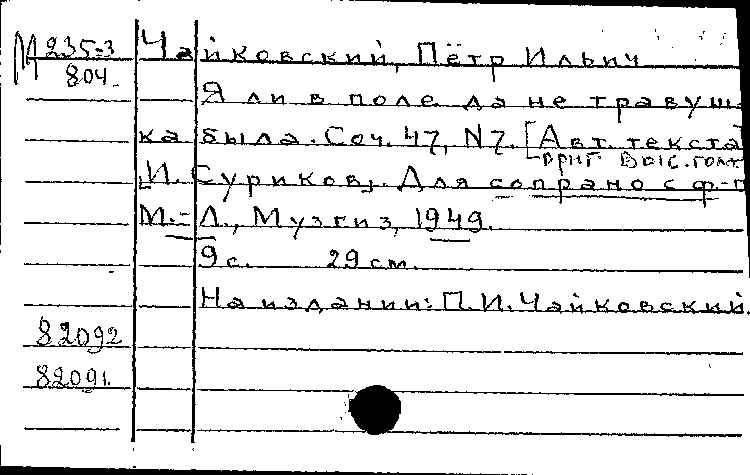 М 235-3
804
Чайковский, Пётр Ильич
Я ли в поле да не травуш-
ка была. Соч. 47, N7. [Авт. текста
ориг. выс. голос
И. Суриков]. Для сопрано с ф-п
М.-Л., Музгиз, 1949.
9 с. 29 см.
На издании: П.И. Чайковский.
82092
82091.